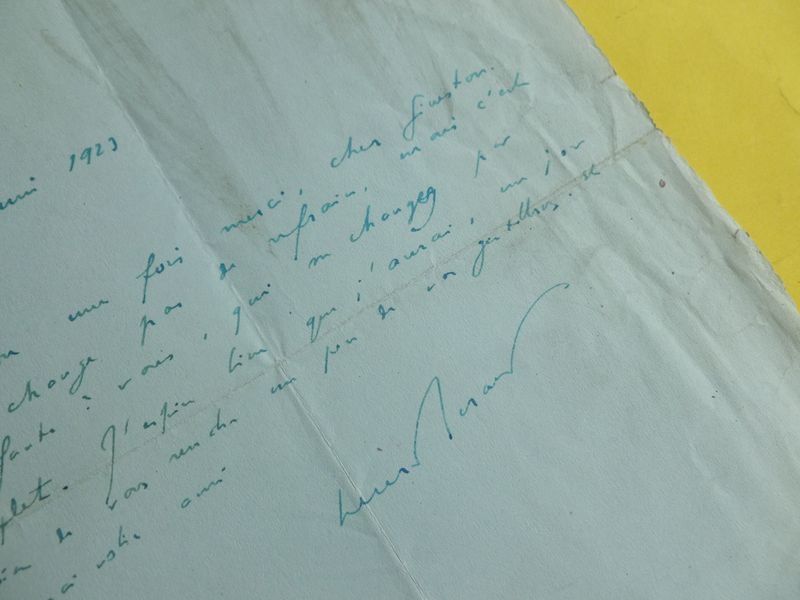 1923
une fois merci, cher
change pas de refrain, mais c'est
faute à vous, qui ne changez pas
J'espère bien que j'aurai, un jour
de vous rendre un peu de vos gentillesses. et
votre ami